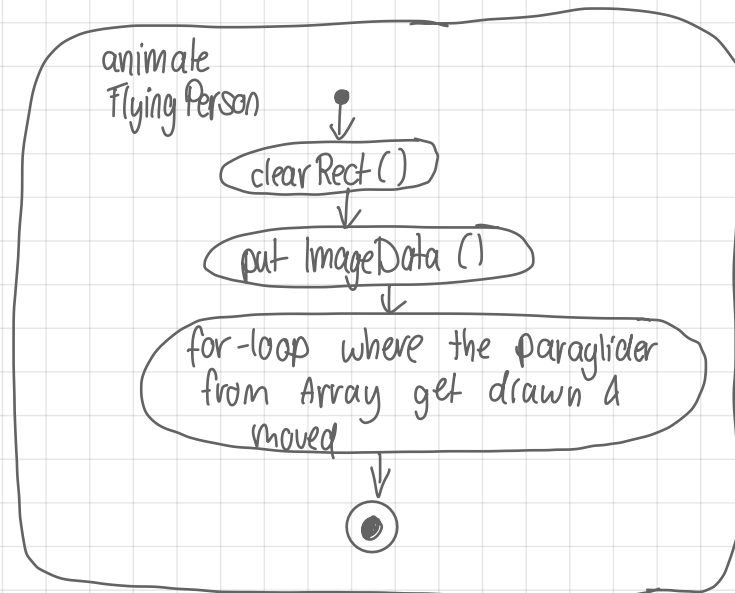 animate
Flying Person
clearRect()
put ImageData ()
for-loop where the paraglider
from Array get drawn &
moved